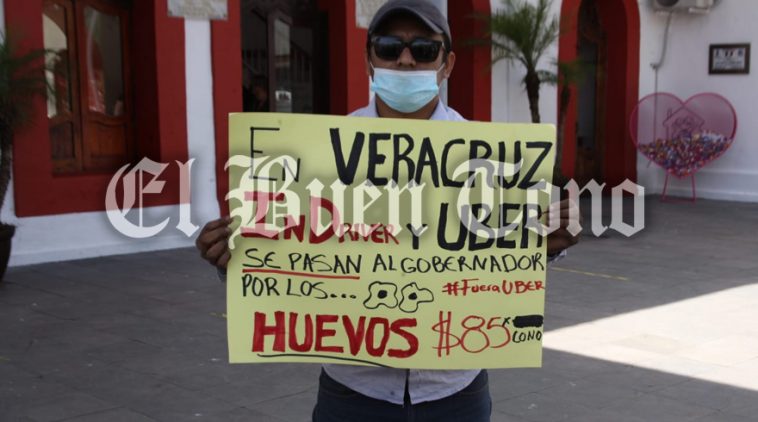 EN VERACRUZ
INDRIVER Y UBER
SE PASAN AL GOBERNADOR
POR LOS... #FueraUBER
HUEVOS $85 CONO
El Buen Tono